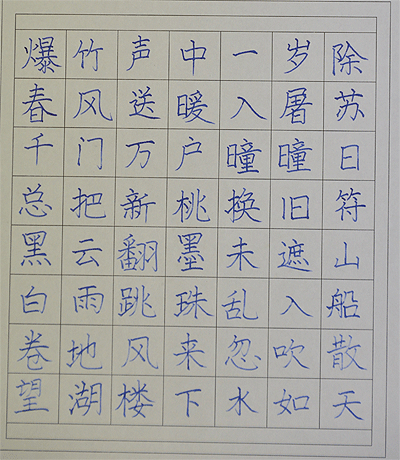 爆竹声中一岁除
春风送暖入屠苏
千门万户曈曈日
总把新桃换旧符
黑云翻墨未遮山
白雨跳珠乱入船
卷地风来忽吹散
望湖楼下水如天